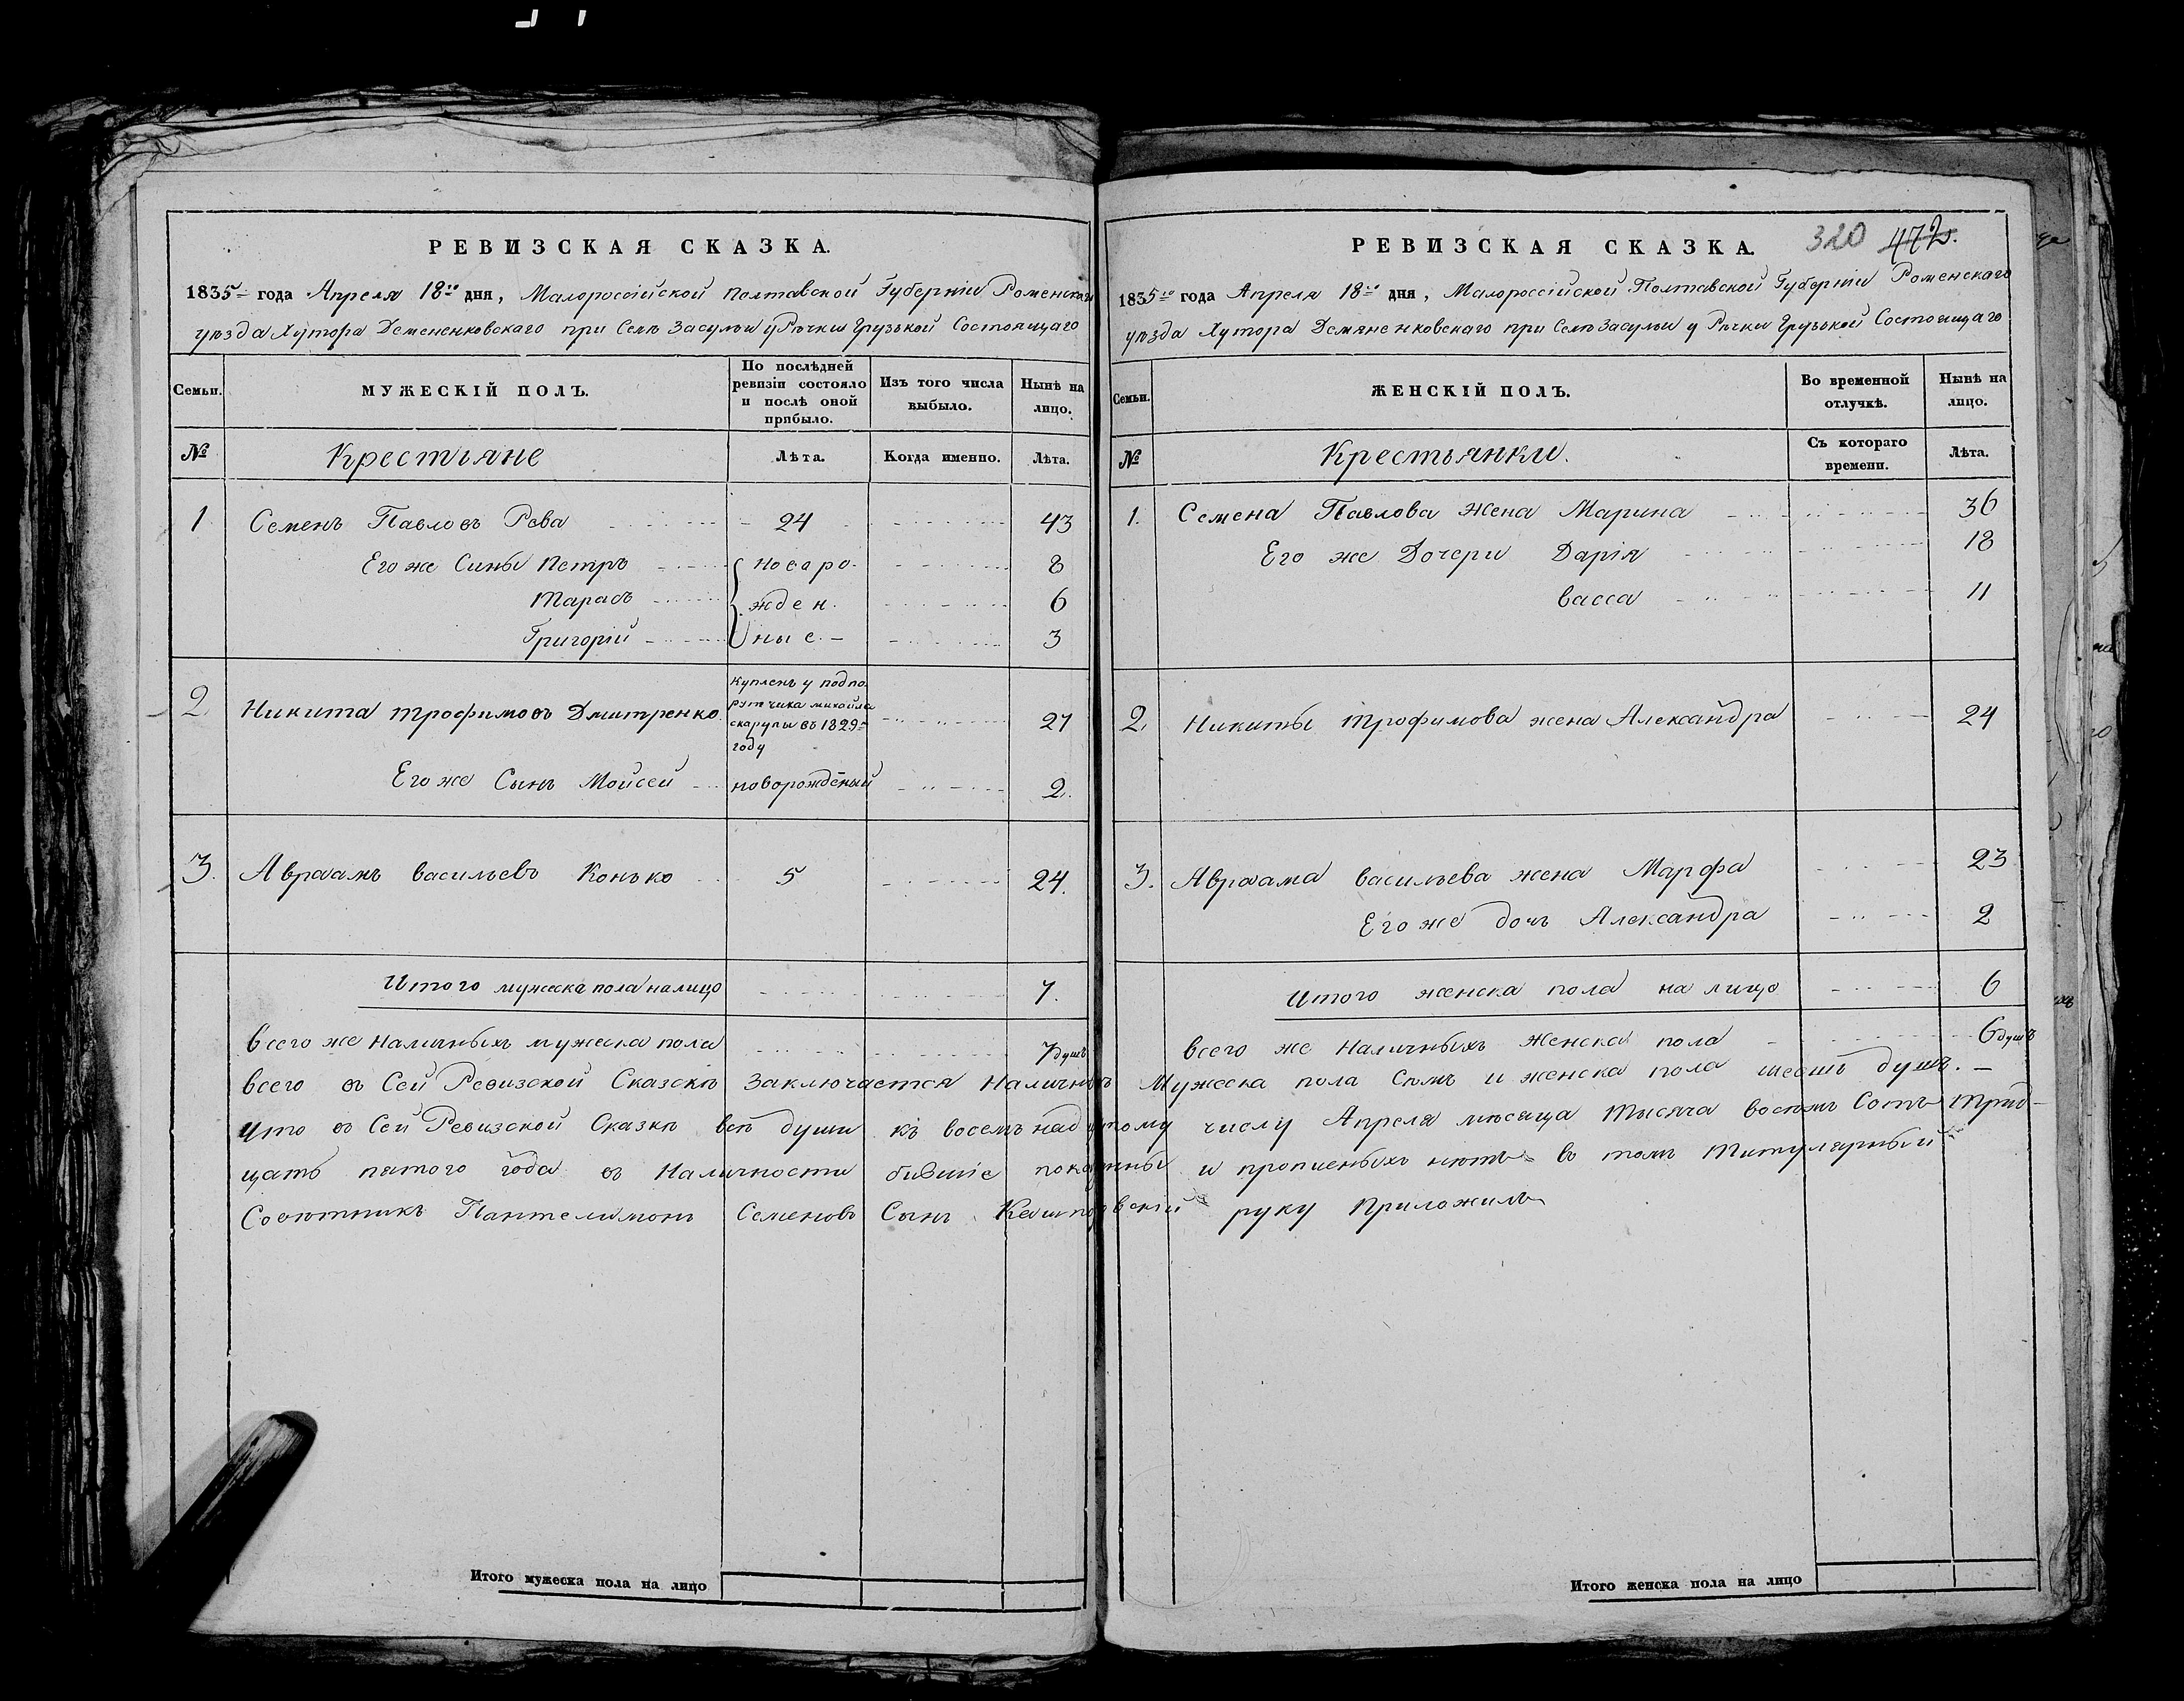 РЕВИЗСКАЯ СКАЗКА.
1835 года Апреля 18го дня, Малороссійской Полтавской Губерніи Роменскаго
уѣзда Хутора Демененковскаго при Селѣ Засульи у Рѣчки Грузькой Состоящаго
Семьи. МУЖЕСКІЙ ПОЛЪ. По послѣдней ревизіи состояло и послѣ оной прибыло. Изъ того числа выбыло. Нынѣ на лицо.
№ Крестьяне Лѣта. Когда именно. Лѣта.
1 Семенъ Павловъ Рева 24 43
Его же Сины Петръ новаро- 8
Тарасъ жден. 6
Григорій ные 3
2 Никита Трофимовъ Дмитренко Купленъ у подпоручика михайла скарупы въ 1829м году 27
Его же Сынъ Мойсей новорожденый 2.
3. Авраамъ Васильевъ Конько 5 24.
Итого мужеска пола налицо 7.
Всего же наличныхъ мужеска пола 7 душъ
РЕВИЗСКАЯ СКАЗКА. 320 472.
1835го года Апреля 18го дня, Малороссійской Полтавской Губерніи Роменскаго
уѣзда Хутора Демяненковскаго при Селѣ Засульи у Рѣчки Грузькой Состоящаго
Семьи. ЖЕНСКІЙ ПОЛЪ. Во временной отлучкѣ. Нынѣ на лицо.
№ Крестьянки. Съ котораго времени. Лѣта.
1. Семена Павлова жена Марина 36
Его же Дочери Дарія 18
Васса 11
2. Никиты Трофимова жена Александра 24
3. Авраама Васильева жена Марфа 23
Его же дочь Александра 2
Итого женска пола на лицо 6
Всего же наличныхъ женска пола 6 душъ
Всего въ Сей Ревизской Сказскѣ Заключается Наличныхъ Мужеска пола Сѣмъ и женска пола шесть душъ.
Что въ Сей Ревизской Сказкѣ всѣ души къ восемънадцятому числу Апреля мѣсяца тысяча восѣмъ Сотъ трид-
цать пятого года въ Наличности бившіе показанны и прописныхъ нѣтъ въ томъ Титулярный
Совѣтникъ Пантелимонъ Семеновъ Сынъ Кашпоровскій руку Приложилъ
Итого мужеска пола на лицо
Итого женска пола на лицо